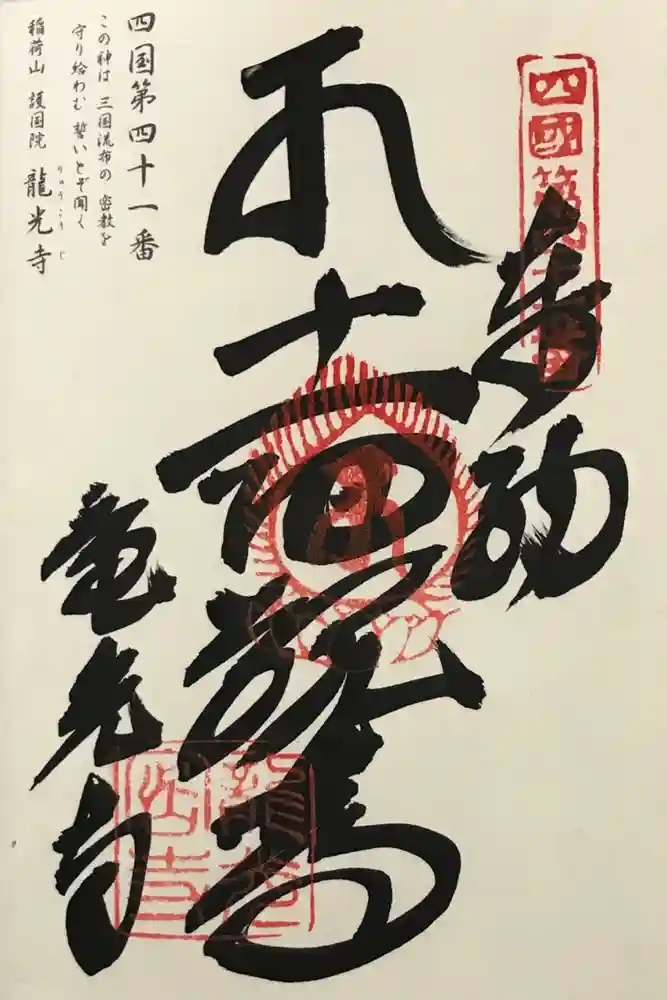 四國第四十一番
奉納
十一面観音
竜光寺
四国第四十一番
この神は 三国流布の 密教を
守り給わむ 誓いとぞ聞く
稲荷山 護国院 龍光寺
りゅうこうじ